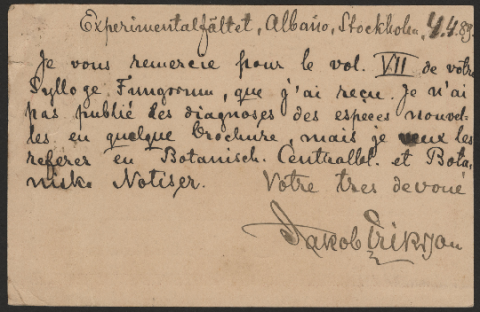 Experimentalfältet, Albano, Stockholm, 4.4.89.
Je vous remercie pour le vol. VII de votre
Sylloge Fungorum, que j'ai reçu. Je n'ai
pas publié des diagnoses des especes nouvel-
les en quelque brochure, mais je veux les
referer en Botanisch. Centralbl. et Bota-
niska Notiser. Votre tres devoué
Jakob Eriksson